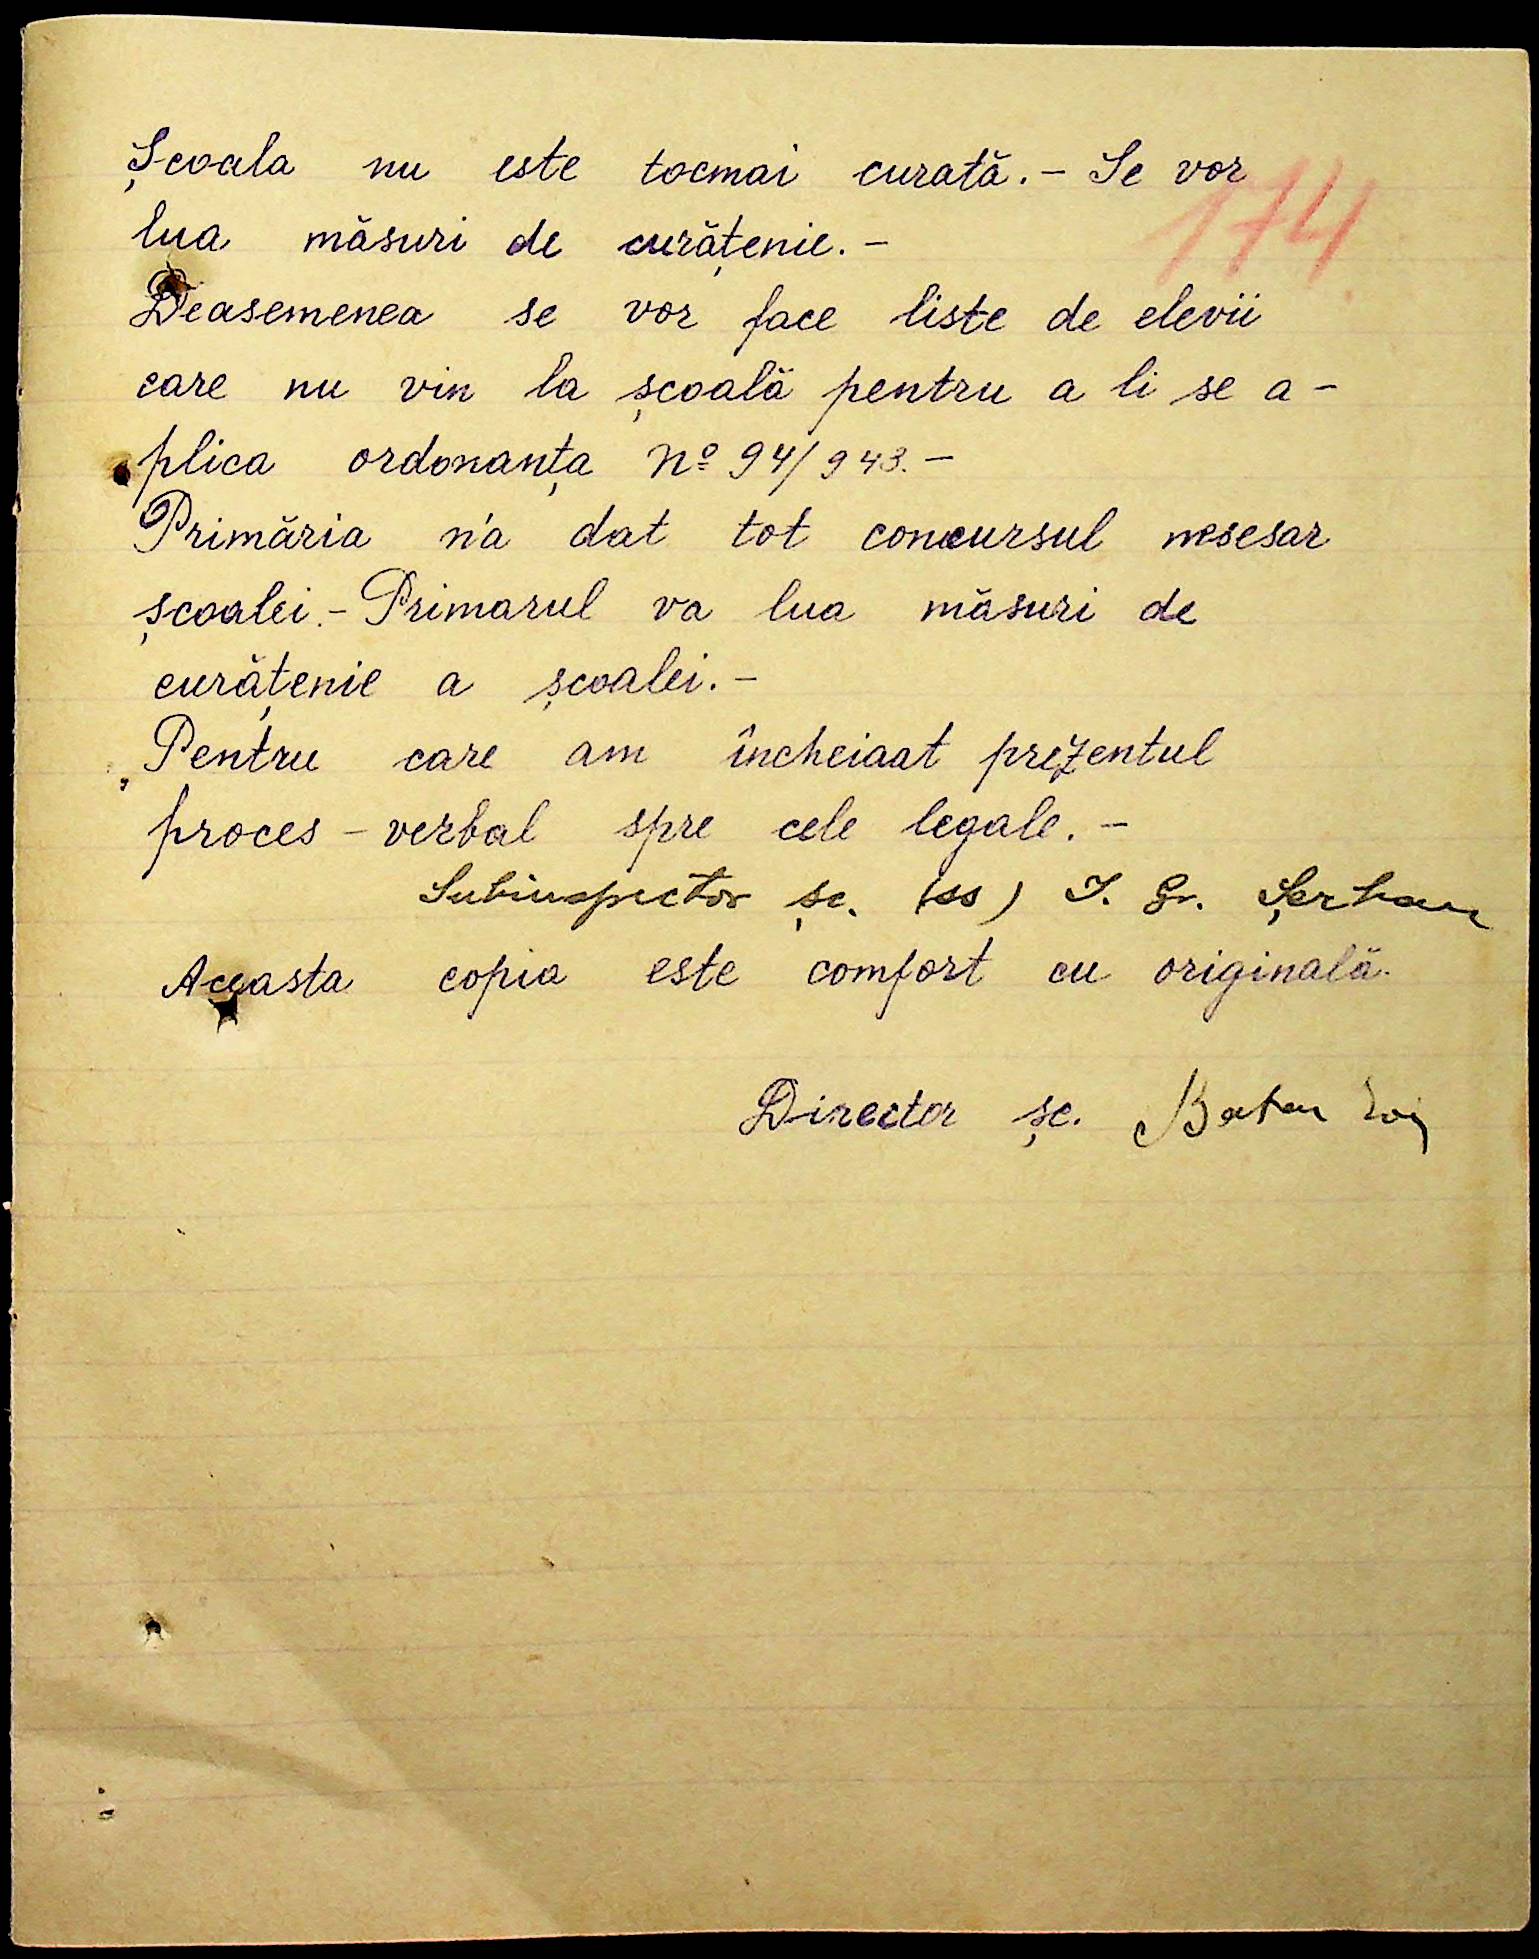 Școala nu este tocmai curată.- Se vor
174
lua măsuri de curățenie.-
Deasemenea se vor face liste de elevii
care nu vin la școală pentru a li se a-
plica ordonanța Nº 94/943.-
Primăria n'a dat tot concursul nesesar
școalei.- Primarul va lua măsuri de
curățenie a școalei.-
Pentru care am încheiaat prezentul
proces-verbal spre cele legale.-
Subinspector șc. (ss) I. Gr. Șerban
Aceasta copia este comfort cu originală.
Director șc.